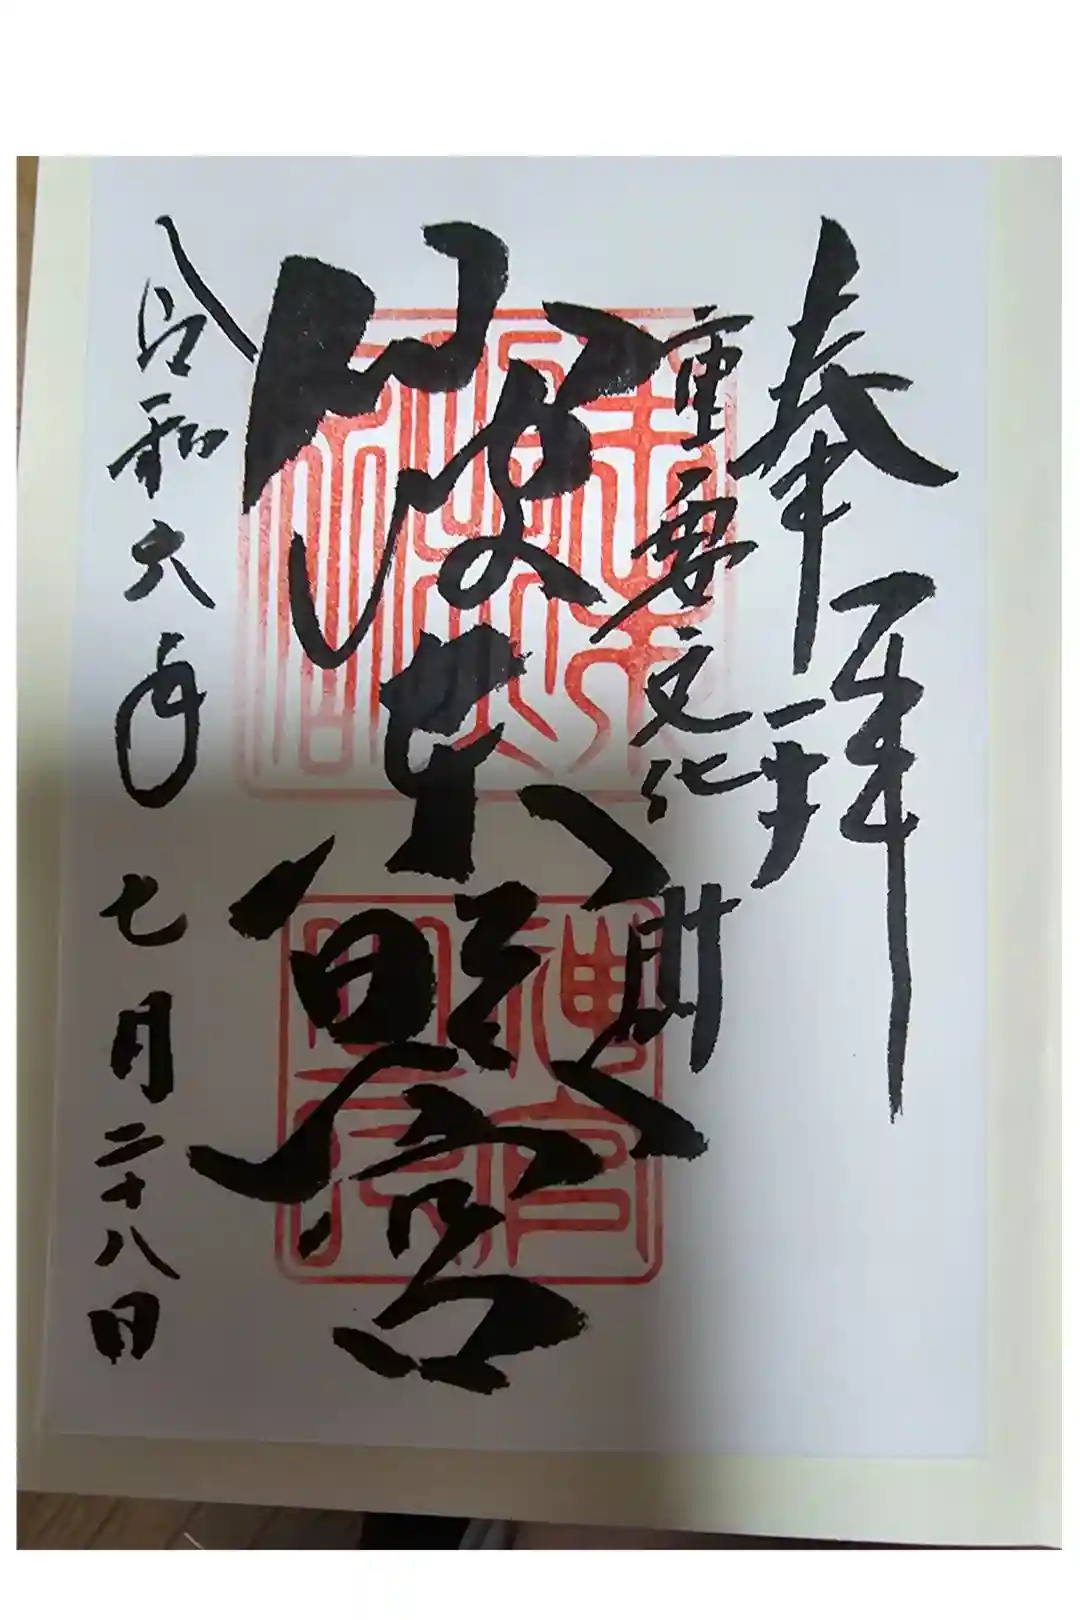 奉拝
重要文化財
仙波東照宮
令和六年七月二十八日